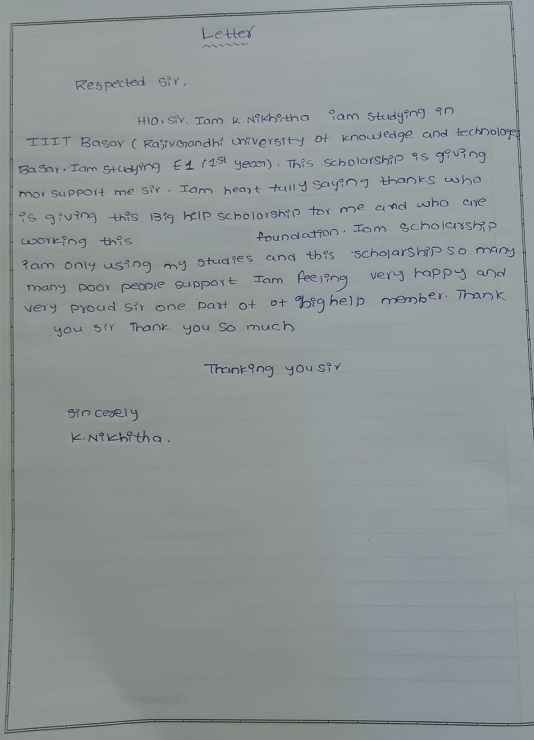 Letter
Respected Sir,
Hlo. Sir. Iam K. Nikhitha iam studying in
IIIT Basar (Rajivgandhi University of knowledge and technologes
Basar. Iam studying E1 (1st year). This scholarship is giving
mor support me sir. Iam heart fully saying thanks who
is giving this Big help scholorship for me and who are
working this foundation. Iam scholarship
iam only using my studies and this scholarship so many
many poor people support Iam feeling very happy and
very proud sir one part of of big help member. Thank
you sir Thank you so much
Thanking you sir
Sincerely
K. Nikhitha.